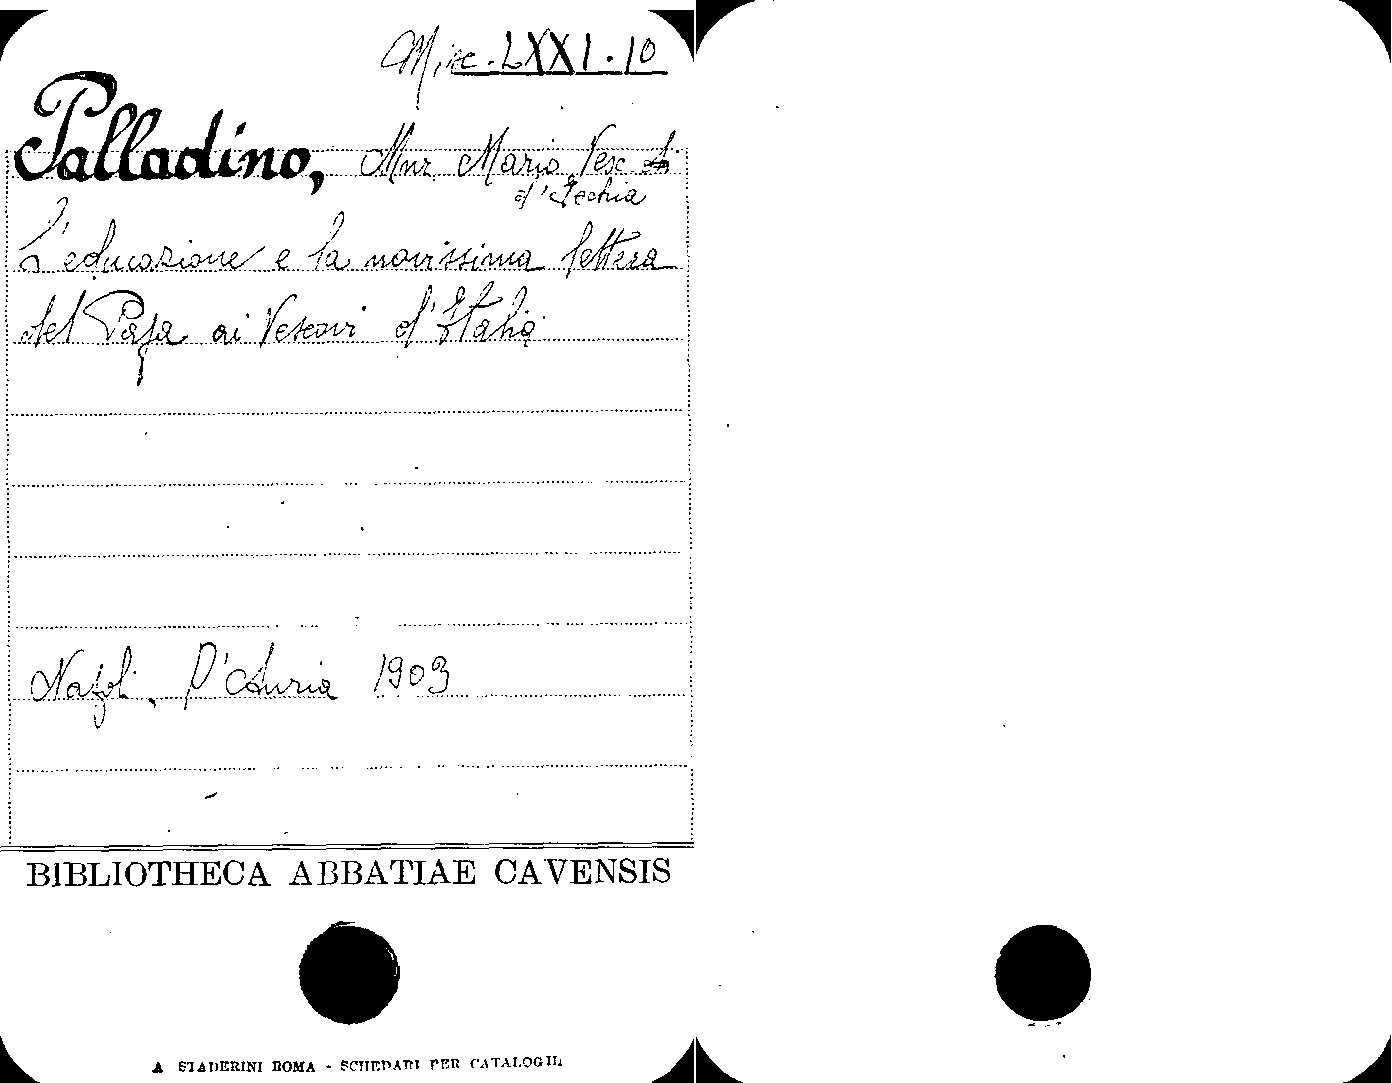 Misc. LXXI. 10
Palladino, Mnr Mario Vesc di
d'Ischia
L'educazione e la novissima lettera
del Papa ai Vescovi d'Italia
Napoli. D'Auria 1903
BIBLIOTHECA ABBATIAE CAVENSIS
A STADERINI ROMA - SCHEDARI PER CATALOGHI